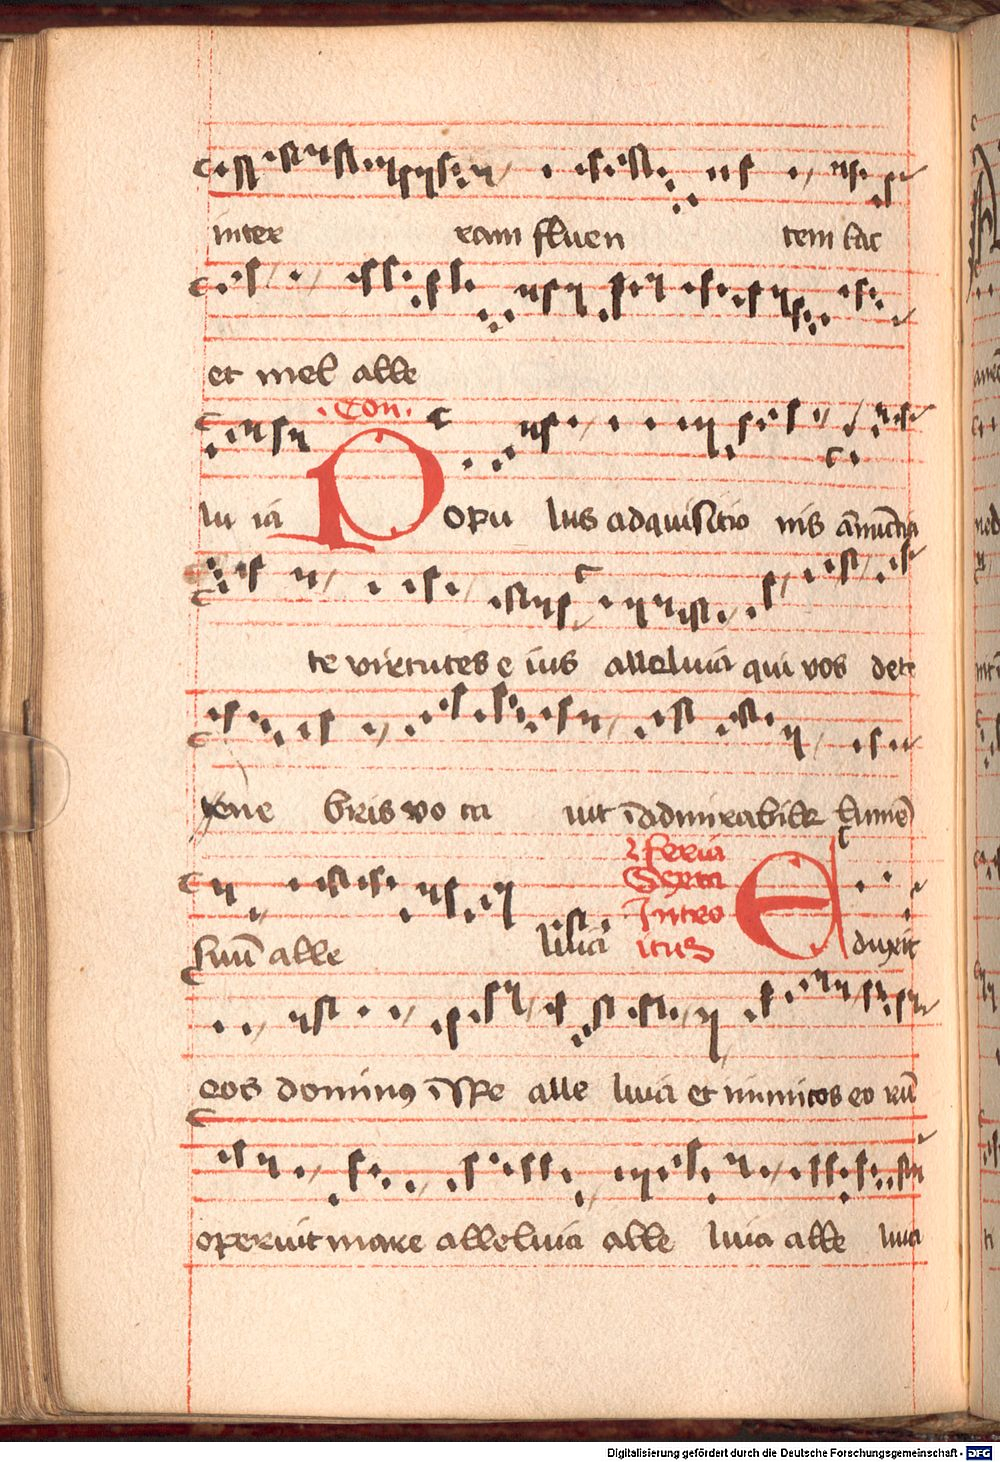 in ter ram fluen tem lac
et mel alle
.Con.
lu ia Popu lus adquisitio nis ānūcia
te virtutes e ius alleluia qui vos dete
tene bris vo ca uit ī admirabile lumē
feria
Sexta
Intro
itus
suū alle luia Eduxit
eos dominus ī spe alle luia et inimicos eo rū
operuit mare alleluia alle luia alle luia
Digitalisierung gefördert durch die Deutsche Forschungsgemeinschaft - DFG